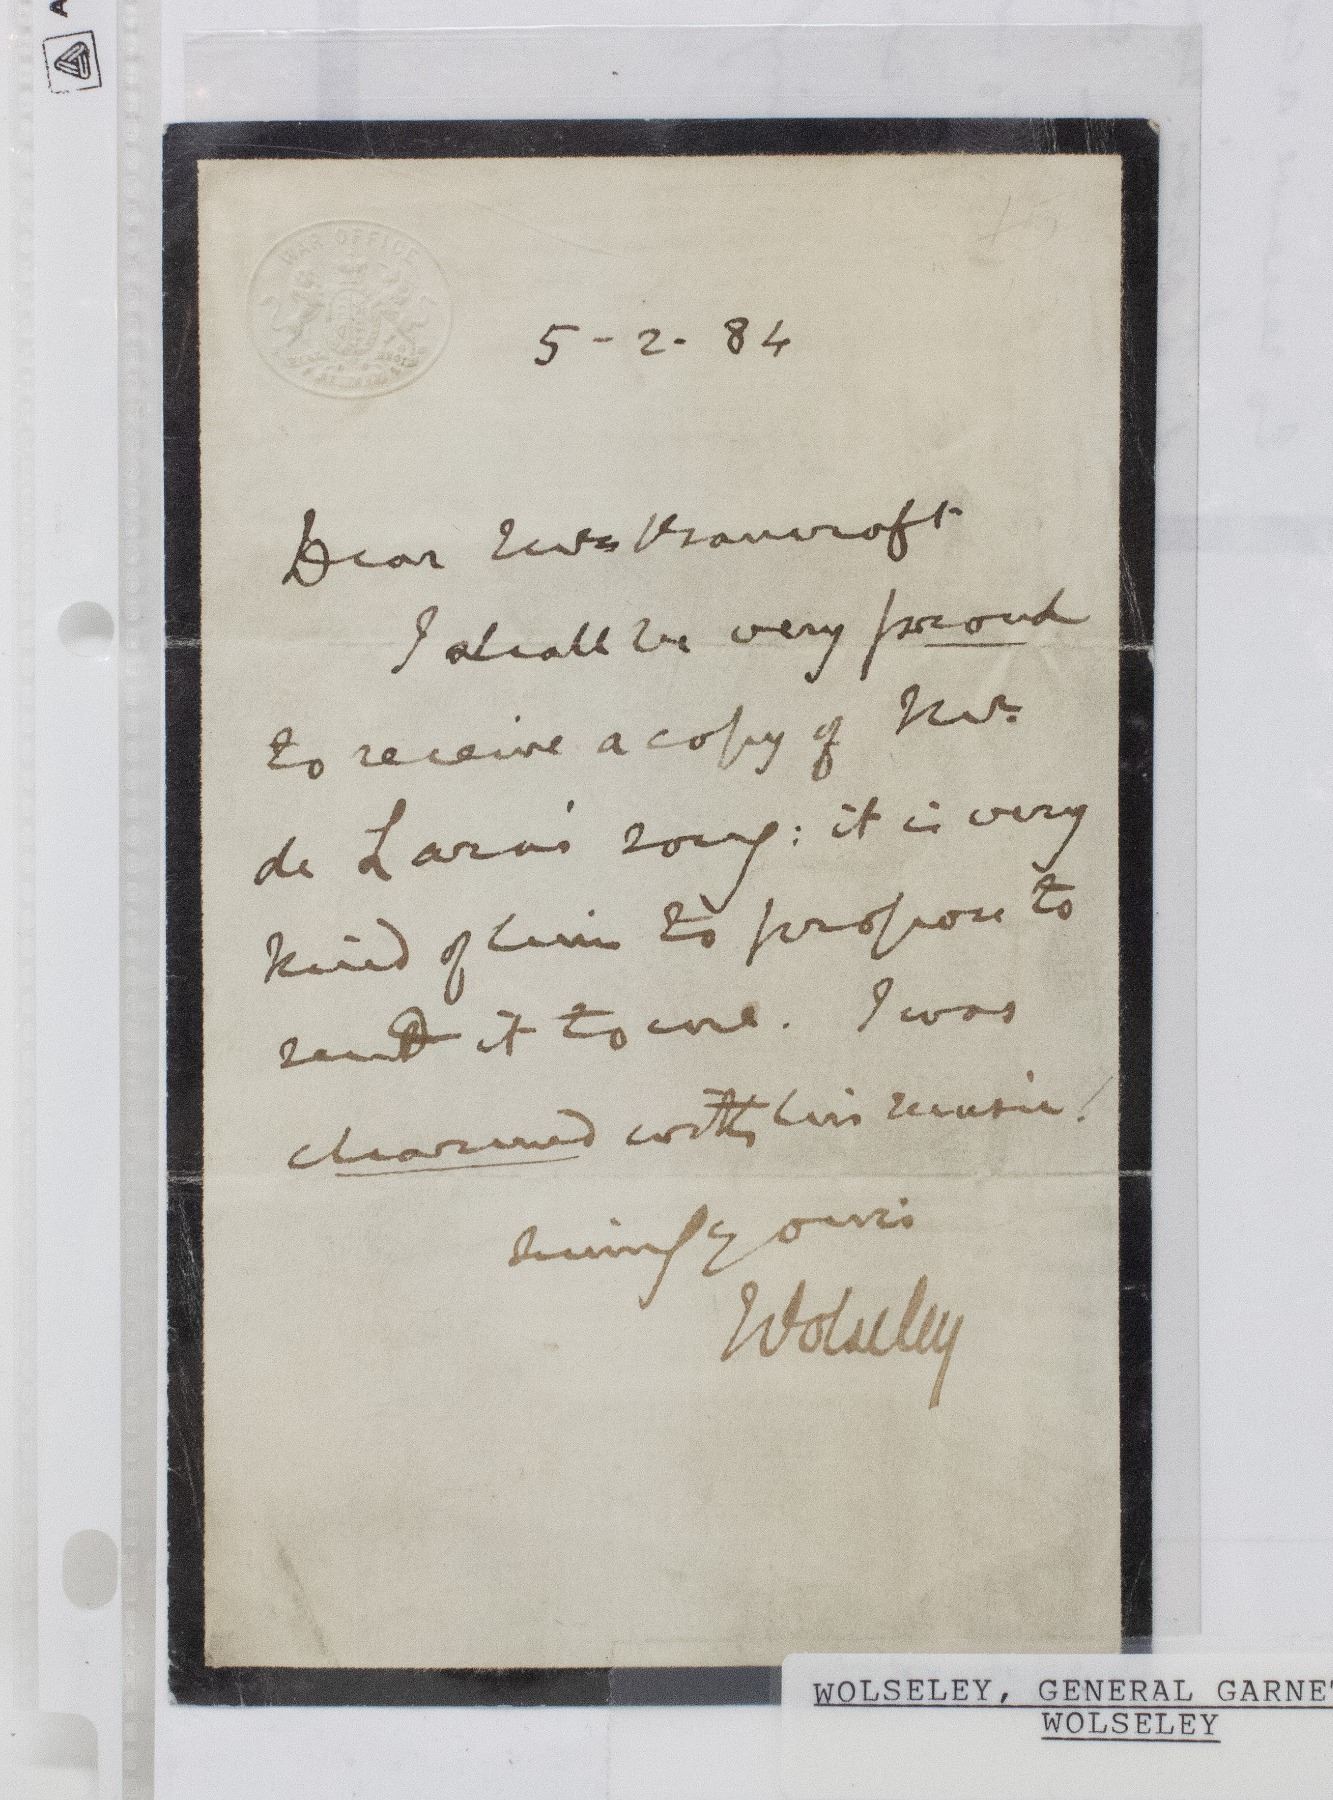 WAR OFFICE
5-2-84
Dear Mrs Bancroft
I shall be very proud
to receive a copy of Mr.
de Lara's song: it is very
kind of him to propose to
send it to me. I was
charmed with his music!
yours
Wolseley
WOLSELEY, GENERAL GARNET
WOLSELEY